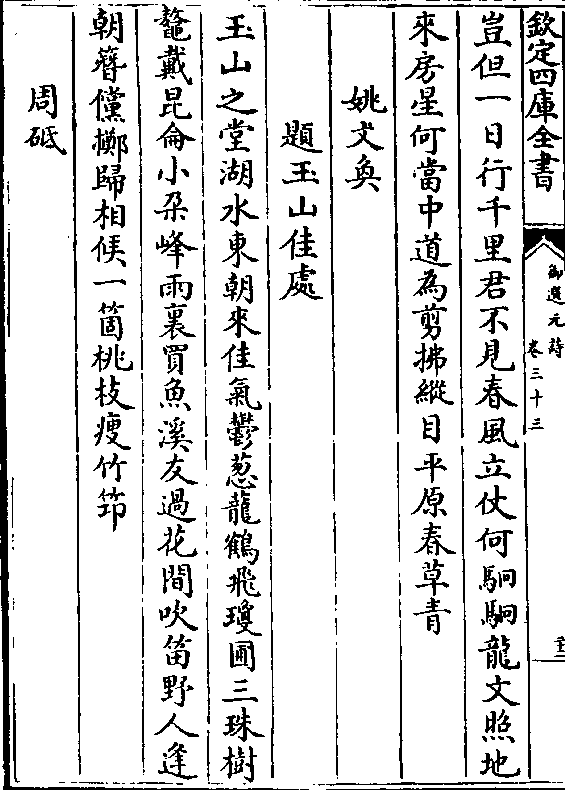 欽定四庫全書
御選元詩
卷三十三
豈但一日行千里君不見春風立仗何駉駉龍文照地
來房星何當中道為剪拂縱目平原春草青
姚文奐
題玉山佳處
玉山之堂湖水東朝來佳氣鬱葱龍鶴飛瓊圃三珠樹
鼇戴昆侖小朶峰雨裏買魚溪友過花間吹笛野人逢
朝簪儻擲歸相候一箇桃枝瘦竹笻
周砥